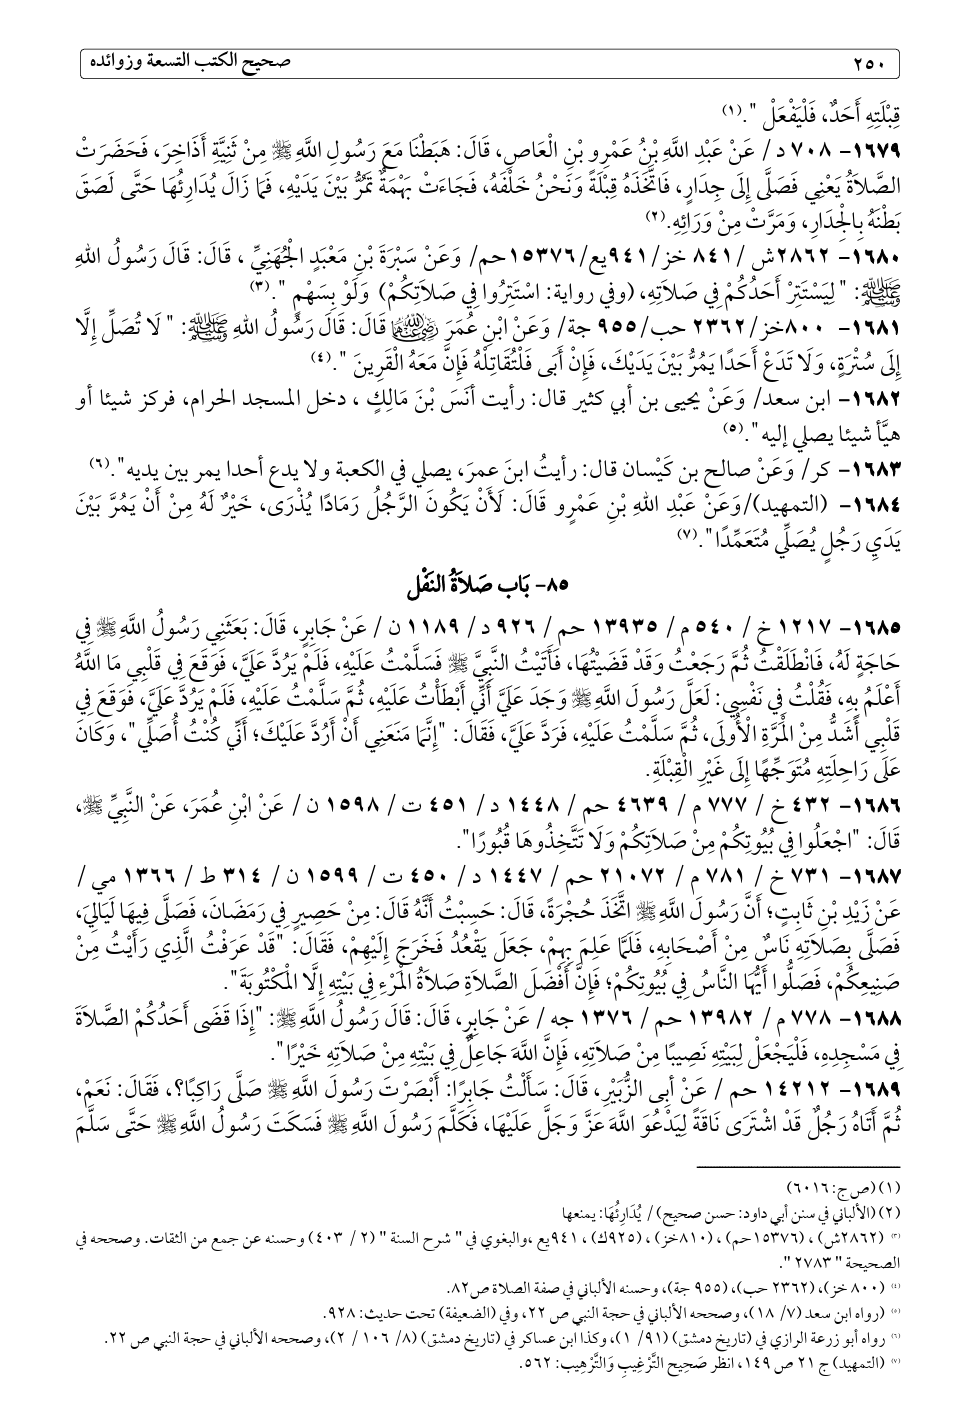 ٢٥٠ صحيح الكتب التسعة وزوائده
قِبْلَتِهِ أَحَدٌ، فَلْيَفْعَلْ ".(١)
١٦٧٩- ٧٠٨ د/ عَنْ عَبْدِ اللَّهِ بْنُ عَمْرِو بْنِ الْعَاصِ، قَالَ: هَبَطْنَا مَعَ رَسُولِ اللَّهِ ﷺ مِنْ ثَنِيَّةِ أَذَاخِرَ، فَحَضَرَتْ
الصَّلاَةُ يَعْنِي فَصَلَّى إِلَى جِدَارٍ، فَاتَّخَذَهُ قِبْلَةً وَنَحْنُ خَلْفَهُ، فَجَاءَتْ بَهْمَةٌ تَمُرُّ بَيْنَ يَدَيْهِ، فَمَا زَالَ يُدَارِئُهَا حَتَّى لَصَقَ
بَطْنَهُ بِالْجِدَارِ، وَمَرَّتْ مِنْ وَرَائِهِ.(٢)
١٦٨٠- ٢٨٦٢ش /٨٤١ خز/٩٤١يع/١٥٣٧٦حم/ وَعَنْ سَبْرَةَ بْنِ مَعْبَدٍ الْجُهَنِيِّ ، قَالَ: قَالَ رَسُولُ اللهِ
ﷺ: " لِيَسْتَتِرْ أَحَدُكُمْ فِي صَلاَتِهِ، (وفي رواية: اسْتَتِرُوا فِي صَلاَتِكُمْ) وَلَوْ بِسَهْمٍ ".(٣)
١٦٨١- ٨٠٠خز/٢٣٦٢ حب/٩٥٥ جة/ وَعَنْ ابْنِ عُمَرَ رضي الله عنهما قَالَ: قَالَ رَسُولُ اللهِ ﷺ: " لَا تُصَلِّ إِلَّا
إِلَى سُتْرَةٍ، وَلَا تَدَعْ أَحَدًا يَمُرُّ بَيْنَ يَدَيْكَ، فَإِنْ أَبَى فَلْتُقَاتِلْهُ فَإِنَّ مَعَهُ الْقَرِينَ ".(٤)
١٦٨٢- ابن سعد/ وَعَنْ يحيى بن أبي كثير قال: رأيت أَنَسَ بْنَ مَالِكٍ ، دخل المسجد الحرام، فركز شيئا أو
هيَّأ شيئا يصلي إليه".(٥)
١٦٨٣- كر/ وَعَنْ صالح بن كَيْسان قال: رأيتُ ابنَ عمرَ، يصلي في الكعبة ولا يدع أحدا يمر بين يديه".(٦)
١٦٨٤- (التمهيد)/وَعَنْ عَبْدِ اللهِ بْنِ عَمْرٍو قَالَ: لَأَنْ يَكُونَ الرَّجُلُ رَمَادًا يُذْرَى، خَيْرٌ لَهُ مِنْ أَنْ يَمُرَّ بَيْنَ
يَدَيِ رَجُلٍ يُصَلِّي مُتَعَمِّدًا".(٧)
٨٥- بَاب صَلاَةُ النَفْل
١٦٨٥- ١٢١٧ خ / ٥٤٠ م / ١٣٩٣٥ حم / ٩٢٦ د / ١١٨٩ ن / عَنْ جَابِرٍ، قَالَ: بَعَثَنِي رَسُولُ اللَّهِ ﷺ فِي
حَاجَةٍ لَهُ، فَانْطَلَقْتُ ثُمَّ رَجَعْتُ وَقَدْ قَضَيْتُهَا، فَأَتَيْتُ النَّبِيَّ ﷺ فَسَلَّمْتُ عَلَيْهِ، فَلَمْ يَرُدَّ عَلَيَّ، فَوَقَعَ فِي قَلْبِي مَا اللَّهُ
أَعْلَمُ بِهِ، فَقُلْتُ فِي نَفْسِي: لَعَلَّ رَسُولَ اللَّهِ ﷺ وَجَدَ عَلَيَّ أَنِّي أَبْطَأْتُ عَلَيْهِ، ثُمَّ سَلَّمْتُ عَلَيْهِ، فَلَمْ يَرُدَّ عَلَيَّ، فَوَقَعَ فِي
قَلْبِي أَشَدُّ مِنْ الْمَرَّةِ الْأُولَى، ثُمَّ سَلَّمْتُ عَلَيْهِ، فَرَدَّ عَلَيَّ، فَقَالَ: "إِنَّمَا مَنَعَنِي أَنْ أَرُدَّ عَلَيْكَ؛ أَنِّي كُنْتُ أُصَلِّي"، وَكَانَ
عَلَى رَاحِلَتِهِ مُتَوَجِّهًا إِلَى غَيْرِ الْقِبْلَةِ.
١٦٨٦- ٤٣٢ خ / ٧٧٧ م / ٤٦٣٩ حم / ١٤٤٨ د/ ٤٥١ ت / ١٥٩٨ ن / عَنْ ابْنِ عُمَرَ، عَنْ النَّبِيِّ ﷺ،
قَالَ: "اجْعَلُوا فِي بُيُوتِكُمْ مِنْ صَلَاتِكُمْ وَلَا تَتَّخِذُوهَا قُبُورًا".
١٦٨٧- ٧٣١ خ / ٧٨١ م / ٢١٠٧٢ حم / ١٤٤٧ د/ ٤٥٠ ت / ١٥٩٩ ن / ٣١٤ ط / ١٣٦٦ مي /
عَنْ زَيْدِ بْنِ ثَابِتٍ؛ أَنَّ رَسُولَ اللَّهِ ﷺ اتَّخَذَ حُجْرَةً، قَالَ: حَسِبْتُ أَنَّهُ قَالَ: مِنْ حَصِيرٍ فِي رَمَضَانَ، فَصَلَّى فِيهَا لَيَالِيَ،
فَصَلَّى بِصَلَاتِهِ نَاسٌ مِنْ أَصْحَابِهِ، فَلَمَّا عَلِمَ بِهِمْ، جَعَلَ يَقْعُدُ فَخَرَجَ إِلَيْهِمْ، فَقَالَ: "قَدْ عَرَفْتُ الَّذِي رَأَيْتُ مِنْ
صَنِيعِكُمْ، فَصَلُّوا أَيُّهَا النَّاسُ فِي بُيُوتِكُمْ؛ فَإِنَّ أَفْضَلَ الصَّلَاةِ صَلَاةُ الْمَرْءِ فِي بَيْتِهِ إِلَّا الْمَكْتُوبَةَ".
١٦٨٨- ٧٧٨ م / ١٣٩٨٢ حم / ١٣٧٦ جه / عَنْ جَابِرٍ، قَالَ: قَالَ رَسُولُ اللَّهِ ﷺ: "إِذَا قَضَى أَحَدُكُمْ الصَّلَاةَ
فِي مَسْجِدِهِ، فَلْيَجْعَلْ لِبَيْتِهِ نَصِيبًا مِنْ صَلَاتِهِ، فَإِنَّ اللَّهَ جَاعِلٌ فِي بَيْتِهِ مِنْ صَلَاتِهِ خَيْرًا".
١٦٨٩- ١٤٢١٢ حم / عَنْ أَبِى الزُّبَيْرِ، قَالَ: سَأَلْتُ جَابِرًا: أَبْصَرْتَ رَسُولَ اللَّهِ ﷺ صَلَّى رَاكِبًا؟، فَقَالَ: نَعَمْ،
ثُمَّ أَتَاهُ رَجُلٌ قَدْ اشْتَرَى نَاقَةً لِيَدْعُوَ اللَّهَ عَزَّ وَجَلَّ عَلَيْهَا، فَكَلَّمَ رَسُولَ اللَّهِ ﷺ فَسَكَتَ رَسُولُ اللَّهِ ﷺ حَتَّى سَلَّمَ
(١) (ص ج: ٦٠١٦)
(٢) (الألباني في سنن أبي داود: حسن صحيح) / يُدَارِئُهَا: يمنعها
(٣) (٢٨٦٢ش) ، (١٥٣٧٦حم) ، (٨١٠خز) ، (٩٢٥ك) ، ٩٤١يع ،والبغوي في " شرح السنة " (٢ / ٤٠٣) وحسنه عن جمع من الثقات. وصححه في
الصحيحة " ٢٧٨٣ ".
(٤) (٨٠٠ خز)، (٢٣٦٢ حب)، (٩٥٥ جة)، وحسنه الألباني في صفة الصلاة ص٨٢.
(٥) (رواه ابن سعد (٧/ ١٨)، وصححه الألباني في حجة النبي ص ٢٢، وفي (الضعيفة) تحت حديث: ٩٢٨.
(٦) رواه أبو زرعة الرازي في (تاريخ دمشق) (٩١/ ١)، وكذا ابن عساكر في (تاريخ دمشق) (٨/ ١٠٦ / ٢)، وصححه الألباني في حجة النبي ص ٢٢.
(٧) (التمهيد) ج ٢١ ص ١٤٩، انظر صَحِيح التَّرْغِيبِ وَالتَّرْهِيب: ٥٦٢.